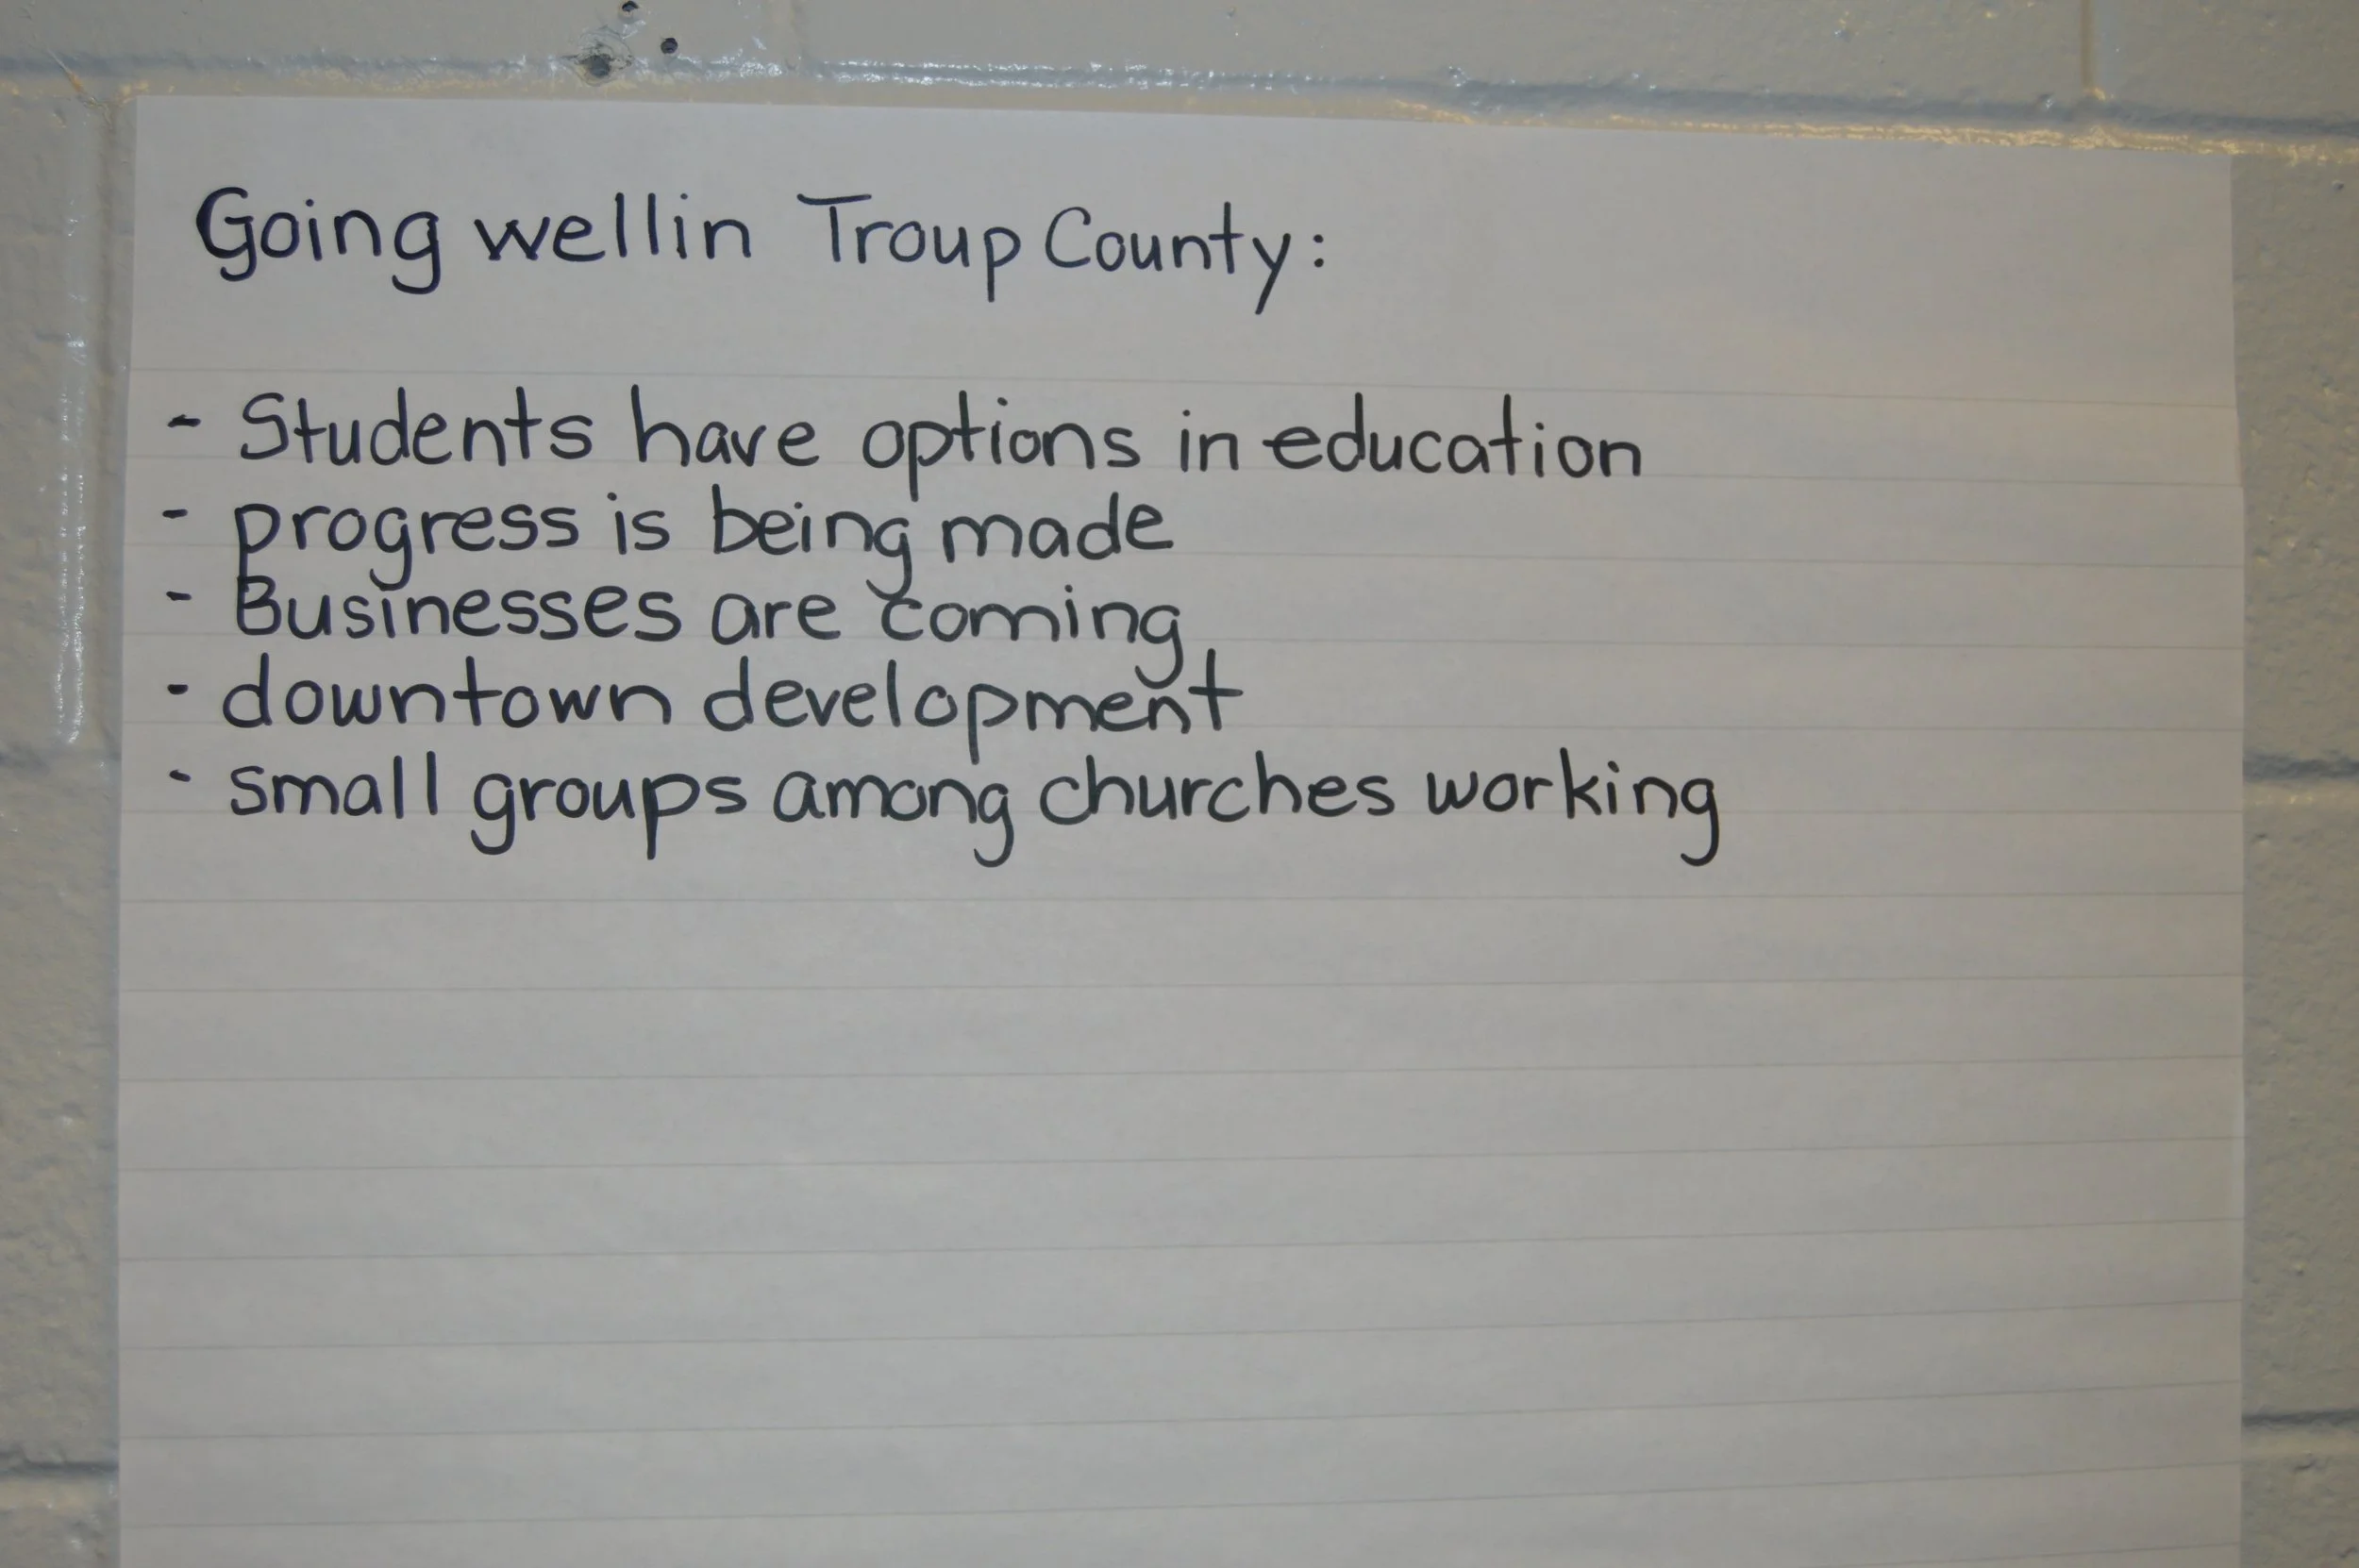 Going wellin Troup County:
- Students have options in education
- progress is being made
- Businesses are coming
- downtown development
- small groups among churches working